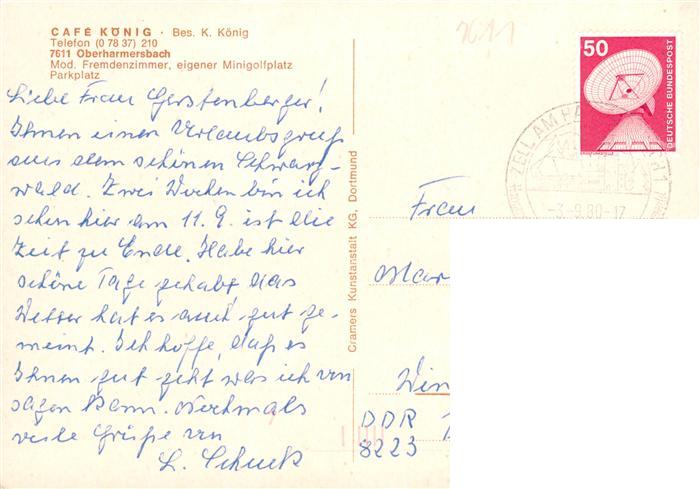 CAFÉ KÖNIG · Bes. K. König
Telefon (0 78 37) 210
7611 Oberharmersbach
Mod. Fremdenzimmer, eigener Minigolfplatz
Parkplatz
Liebe Frau Gerstenberger!
Ihnen einen Urlaubsgruß
aus dem schönen Schwarz-
wald. Zwei Wochen bin ich
schon hier am 11.9. ist die
Zeit zu Ende. Habe hier
schöne Tage gehabt das
Wetter hat es auch gut ge-
meint. Ich hoffe, daß es
Ihnen gut geht was ich von
sagen kann. Nochmals
viele Grüße von
L. Schuck
Cramers Kunstanstalt KG, Dortmund
50
DEUTSCHE BUNDESPOST
ZELL AM HA
-3.-9.80-17
Frau
Mar
DDR
8223